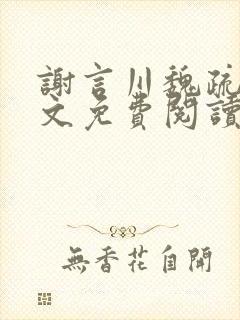 謝言川魏疏
文免費閱讀
無香花自開